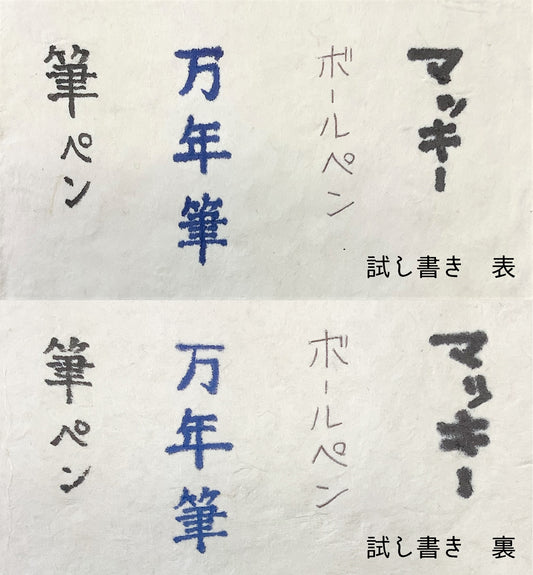 マッキー
ボールペン
万年筆
筆ペン
試し書き　表
マッキー
ボールペン
万年筆
筆ペン
試し書き　裏